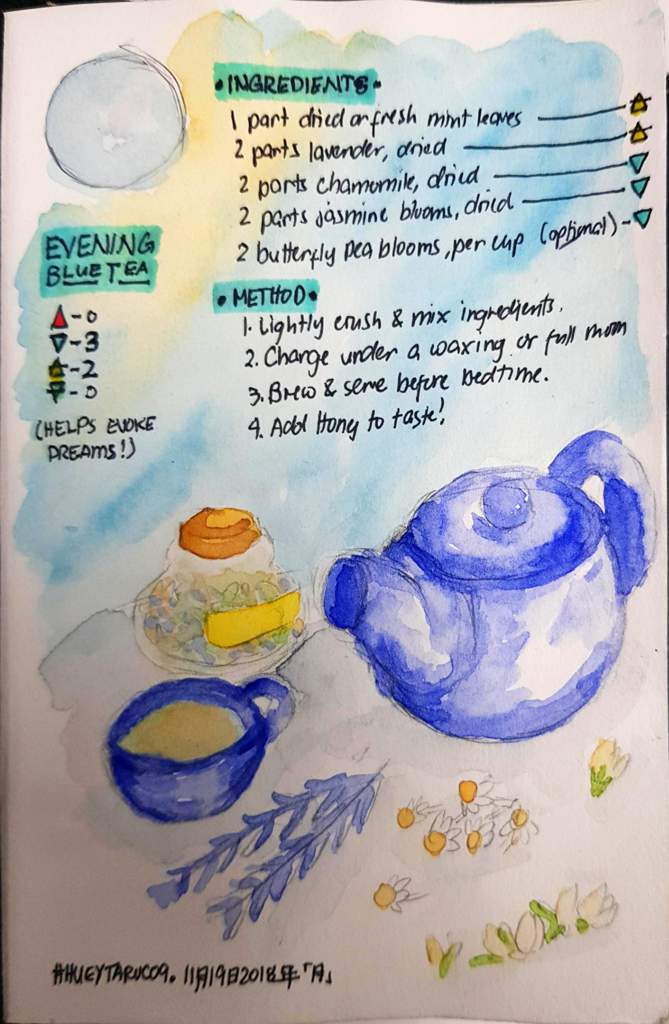 EVENING
BLUE TEA
- 0
- 3
- 2
- 0
(HELPS EVOKE
DREAMS!)
• INGREDIENTS •
1 part dried or fresh mint leaves
2 parts lavender, dried
2 parts chamomile, dried
2 parts jasmine blooms, dried
2 butterfly pea blooms, per cup (optional) -
• METHOD •
1. Lightly crush & mix ingredients.
2. Charge under a waxing or full moon
3. Brew & serve before bedtime.
4. Add Honey to taste!
#HUEYTAROC09. 11月19日2018年「月」